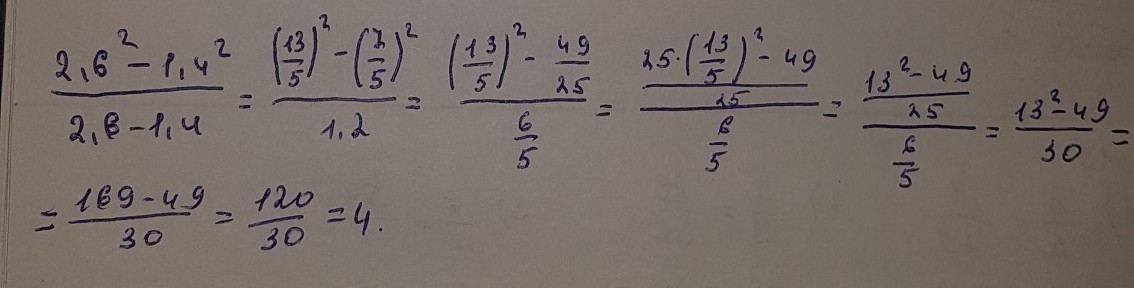 (2,6² − 1,4²)/(2,6 − 1,4) = ((13/5)² − (7/5)²)/(1,2) = ((13/5)² − 49/25)/(6/5) = ((25·(13/5)² − 49)/25)/(6/5) = ((13² − 49)/25)/(6/5) = (13² − 49)/30 =
= (169 − 49)/30 = 120/30 = 4.